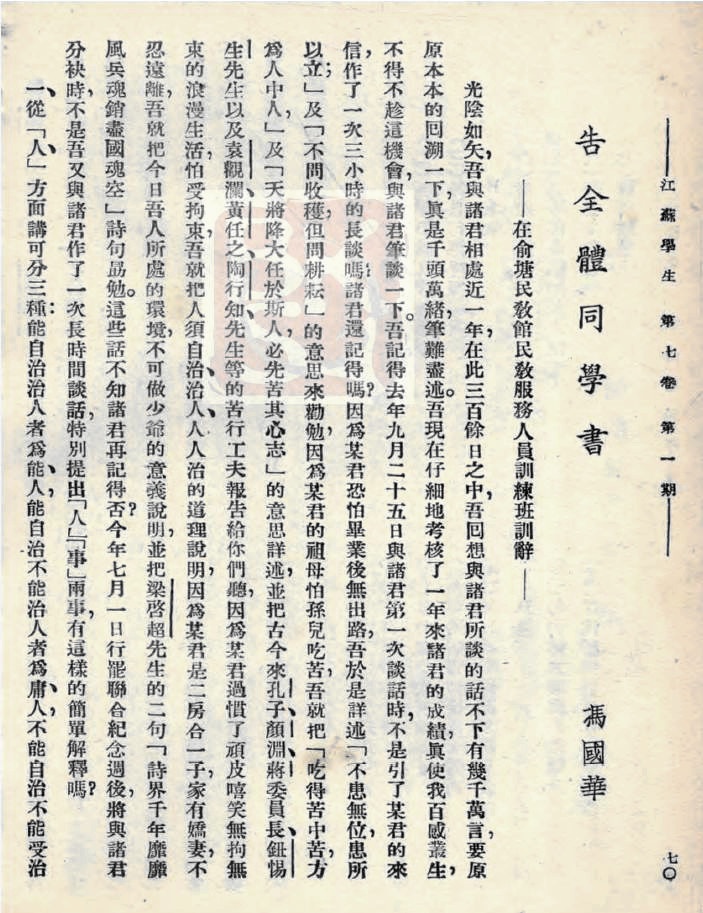 江蘇學生　第七卷　第一期
七〇
告全體同學書
馮國華
——在俞塘民敎館民敎服務人員訓練班訓辭——
光陰如矢,吾與諸君相處近一年,在此三百餘日之中,吾囘想與諸君所談的話不下有幾千萬言,要原
原本本的囘溯一下,眞是千頭萬緒,筆難盡述。吾現在仔細地考核了一年來諸君的成績,眞使我百感叢生,
不得不趁這機會,與諸君筆談一下。吾記得去年九月二十五日與諸君第一次談話時,不是引了某君的來
信,作了一次三小時的長談嗎?諸君還記得嗎?因爲某君恐怕畢業後無出路,吾於是詳述「不患無位,患所
以立;」及「不問收穫,但問耕耘」的意思來勸勉,因爲某君的祖母怕孫兒吃苦,吾就把「吃得苦中苦,方
爲人中人,」及「天將降大任於斯人,必先苦其心志」的意思詳述,並把古今來孔子、顏淵、蔣委員長、鈕惕
生先生以及袁觀瀾、黃任之、陶行知、先生等的苦行工夫報告給你們聽,因爲某君過慣了頑皮嘻笑無拘無
束的浪漫生活,怕受拘束,吾就把人須自治、治人、人治的道理說明,因爲某君是二房合一子,家有嬌妻,不
忍遠離,吾就把今日吾人所處的環境,不可做少爺的意義說明,並把梁啓超先生的二句「詩界千年靡靡
風,兵魂銷盡國魂空」詩句勗勉。這些話不知諸君再記得否?今年七月一日行罷聯合紀念週後,將與諸君
分袂時,不是吾又與諸君作了一次長時間談話,特別提出「人」「事」兩事,有這樣的簡單解釋嗎?
一、從「人」方面講可分三種:能自治治人者爲能人,能自治不能治人者爲庸人,不能自治不能受治